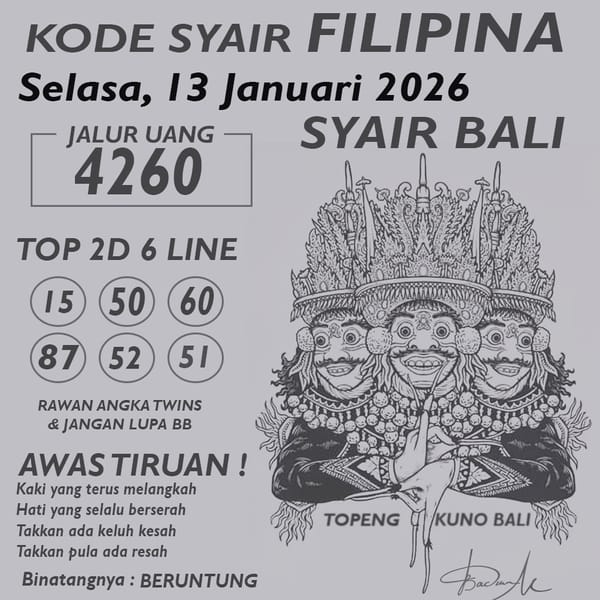 KODE SYAIR FILIPINA
Selasa, 13 Januari 2026
SYAIR BALI
JALUR UANG
4260
TOP 2D 6 LINE
15 50 60
87 52 51
RAWAN ANGKA TWINS
& JANGAN LUPA BB
AWAS TIRUAN !
Kaki yang terus melangkah
Hati yang selalu berserah
Takkan ada keluh kesah
Takkan pula ada resah
Binatangnya : BERUNTUNG
TOPENG KUNO BALI